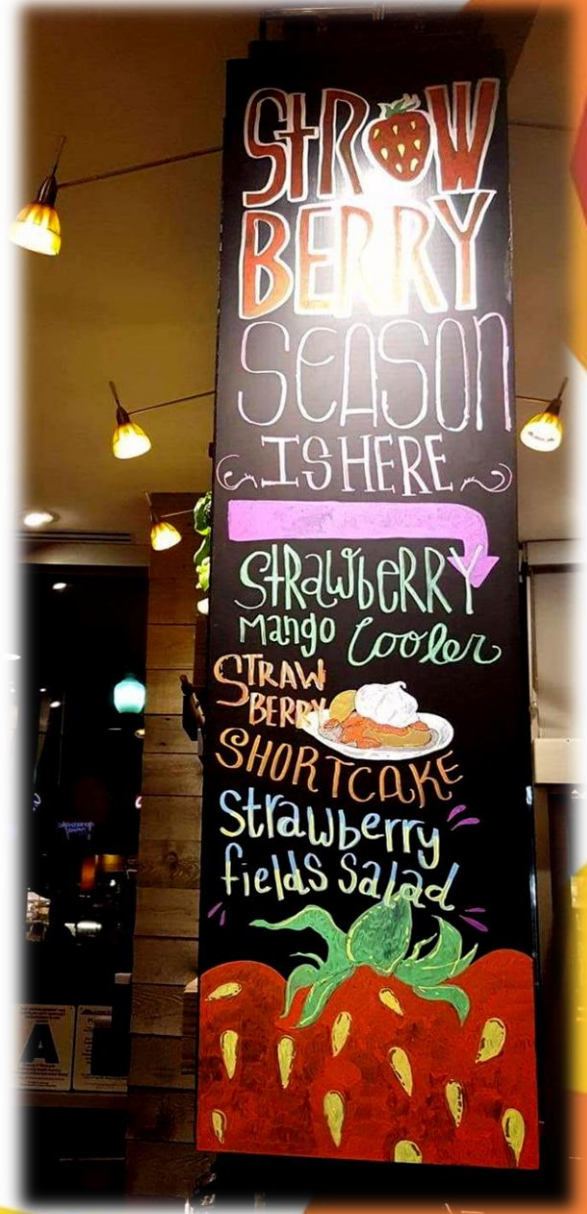 STROW
BERRY
SEASON
IS HERE
STRawbeRRY
Mango Cooler
STRAW
BERRY
SHORTCAKE
Strawberry
fields Salad
A